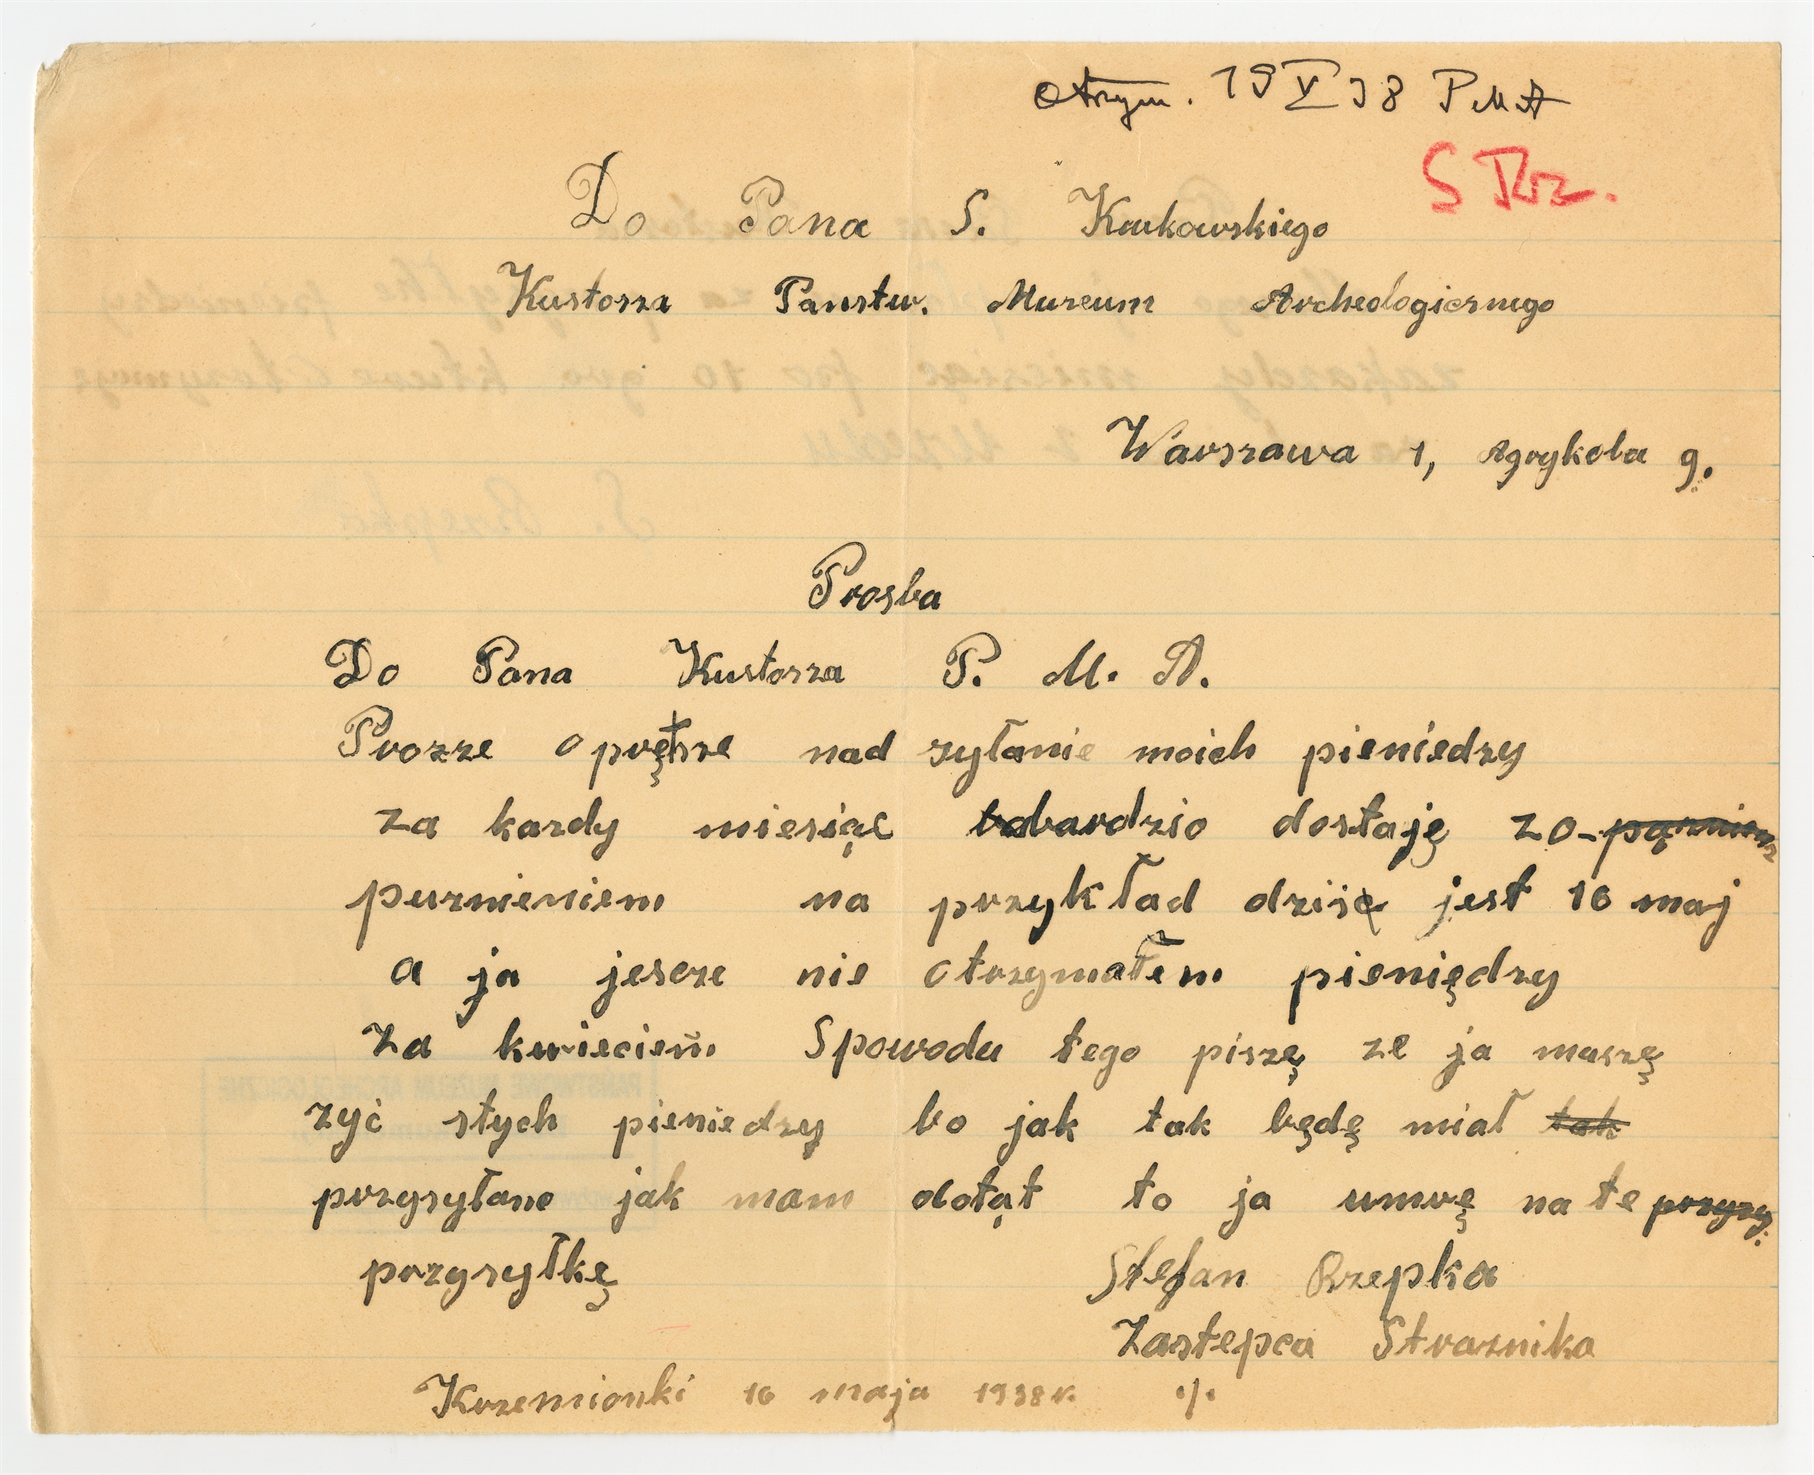 otrzym. 19 V 38 PMA
S Rz.
Do Pana S. Krukowskiego
Kustosza Panstw. Muzeum Archeologicznego
Warszawa 1, Agrykola 9.
Prosba
Do Pana Kustosza P. M. A.
Prozze o prętsze nad zyłanie moich pieniedzy
za kazdy miesiąc bardzio dostaję z o-
puznieniem na przykład dzisę jest 16 maj
a ja jescze nie otrzymałem pieniędzy
za kwiecień Spowodu tego piszę ze ja muszę
zyć stych pieniedzy bo jak tak będę miał tak
przysyłane jak mam dotąt to ja umrę na te
przysyłkę Stefan Rzepka
Zastepca Straznika
Krzemionki 16 maja 1938 r. ./.